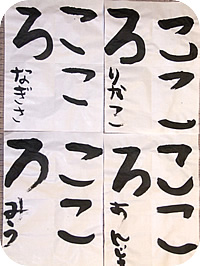 ここ
ろ
りかこ
ここ
ろ
なぎさ
ここ
ろ
ここ
ろ
みう